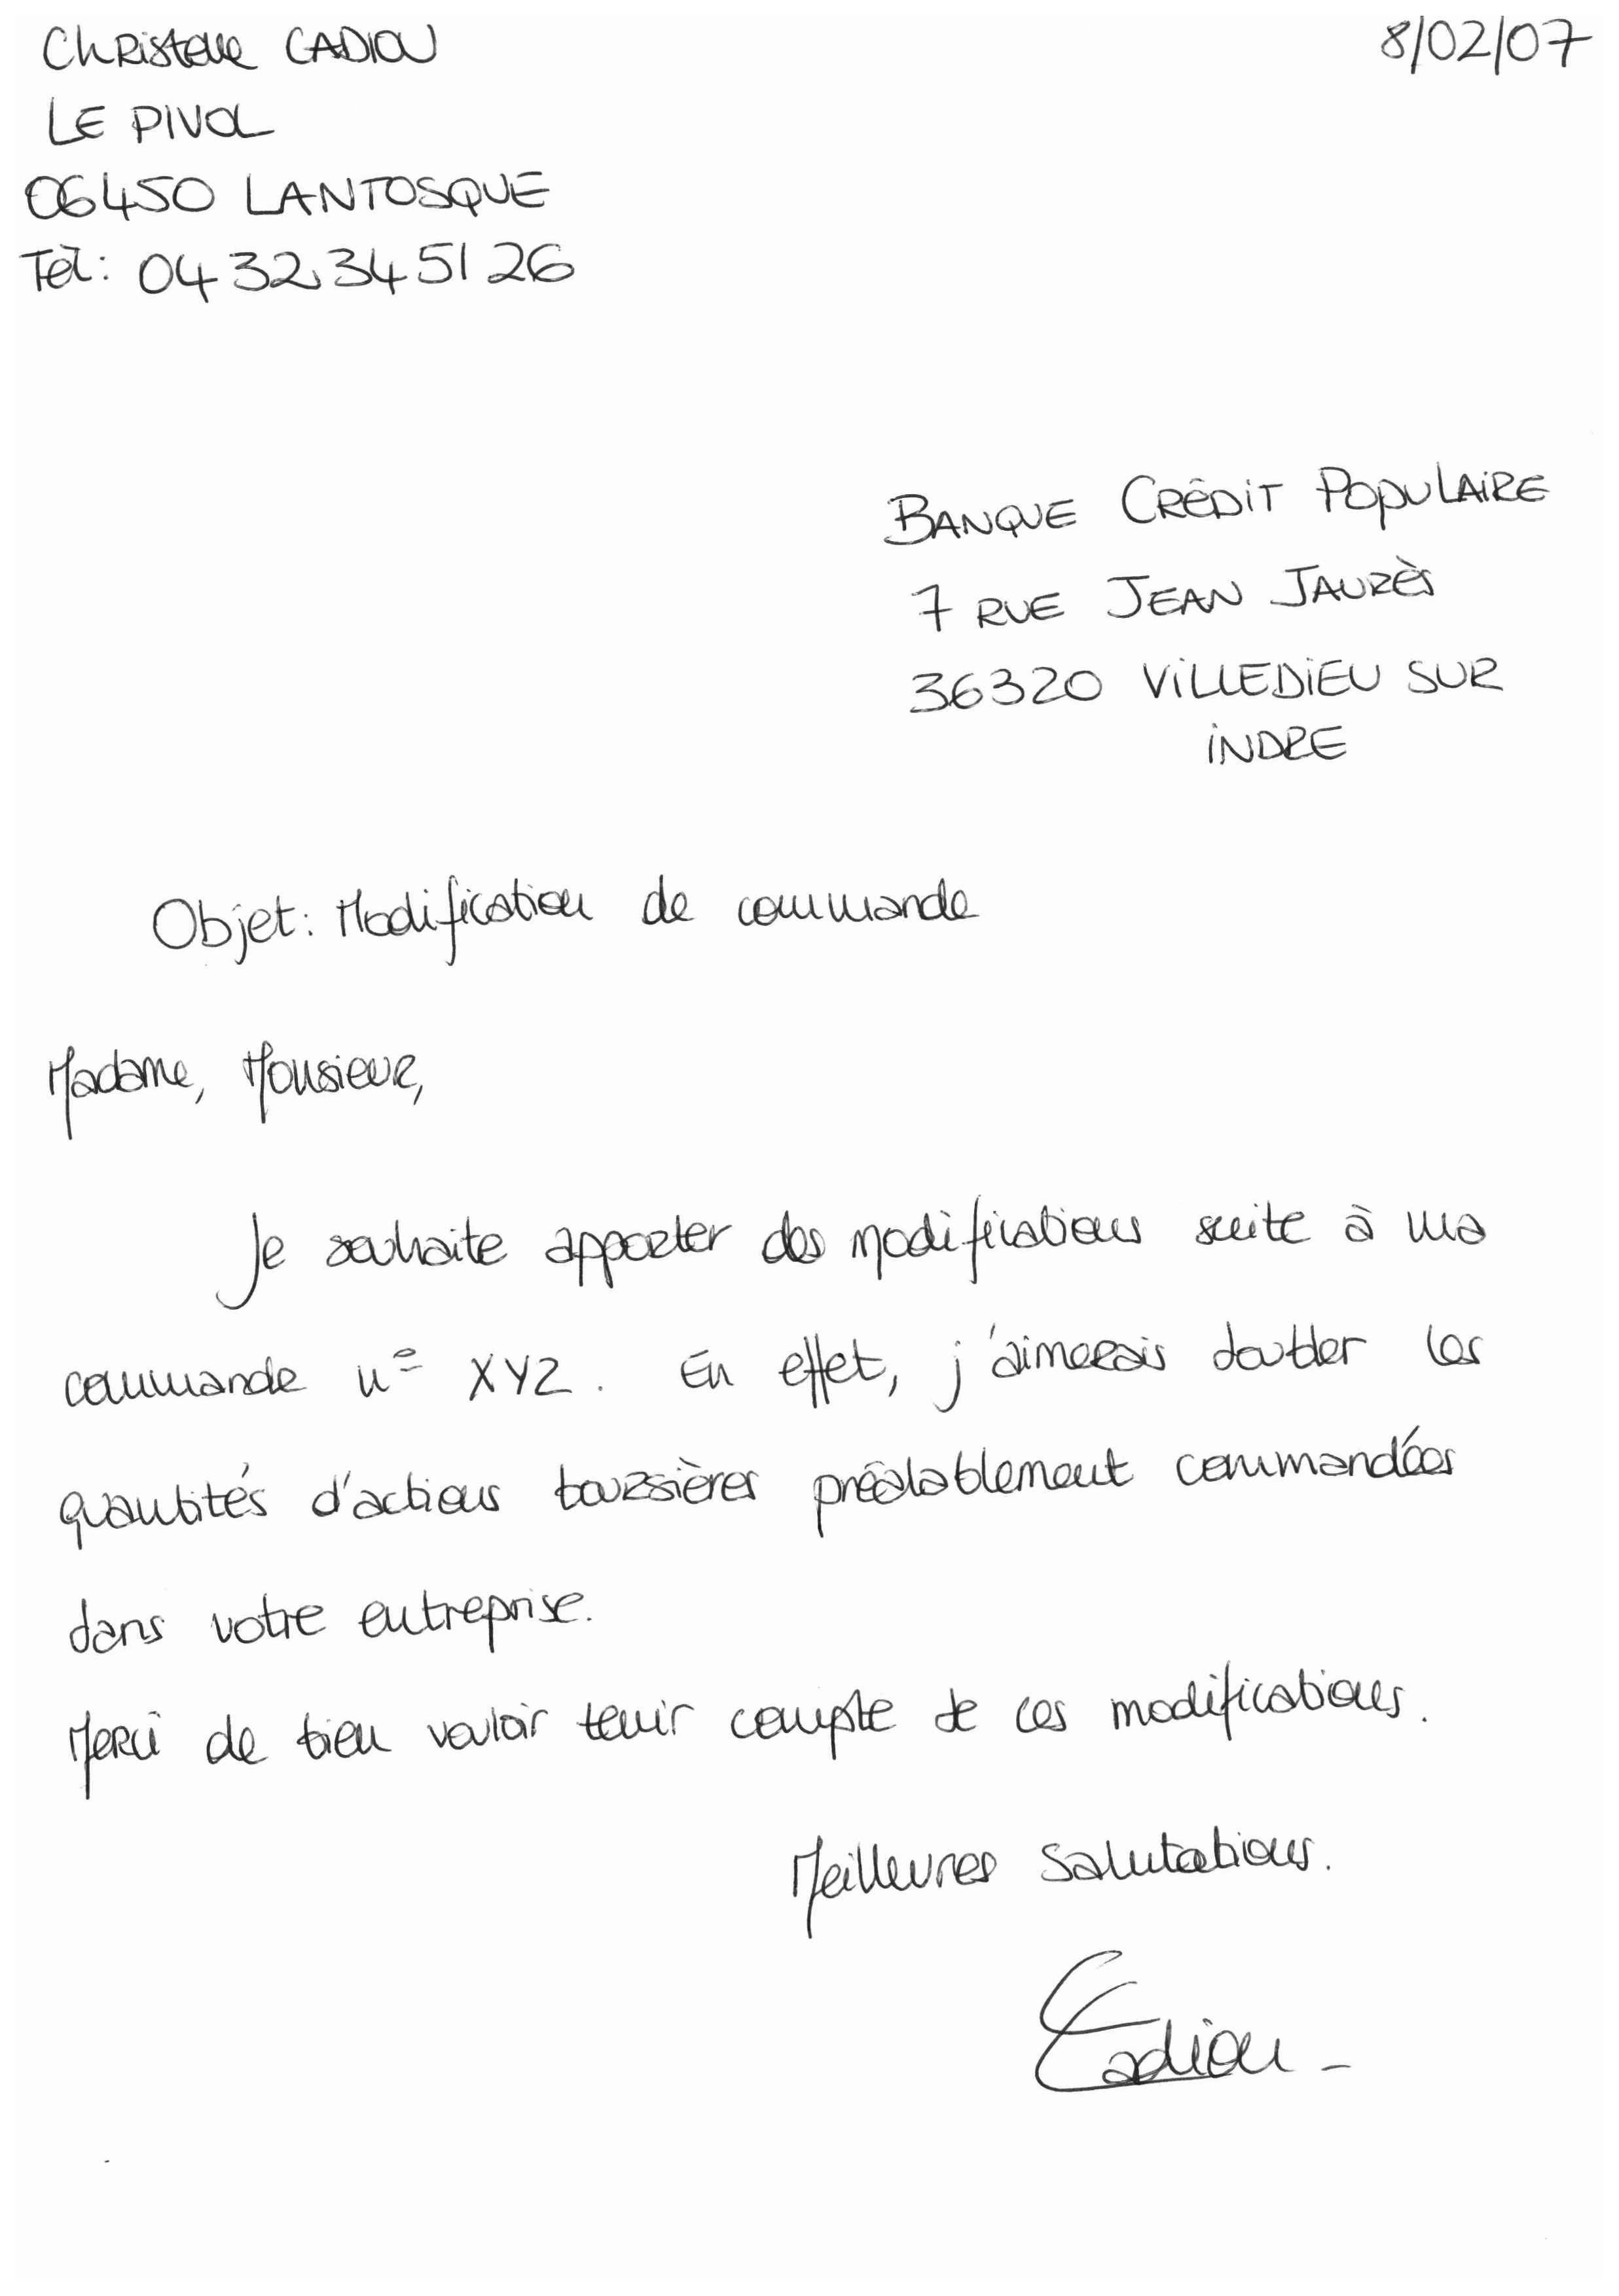 Christelle CADIOU
8/02/07
LE PIVOL
06450 LANTOSQUE
Tél: 04 32 34 51 26
BANQUE CRÉDIT POPULAIRE
7 RUE JEAN JAURÈS
36320 VILLEDIEU SUR
INDRE
Objet: Modification de commande
Madame, Monsieur,
Je souhaite apporter des modifications suite à ma
commande n° XYZ. En effet, j'aimerais doubler les
quantités d'actions boursières préalablement commandées
dans votre entreprise.
Merci de bien vouloir tenir compte de ces modifications.
Meilleures Salutations.
Cadiou